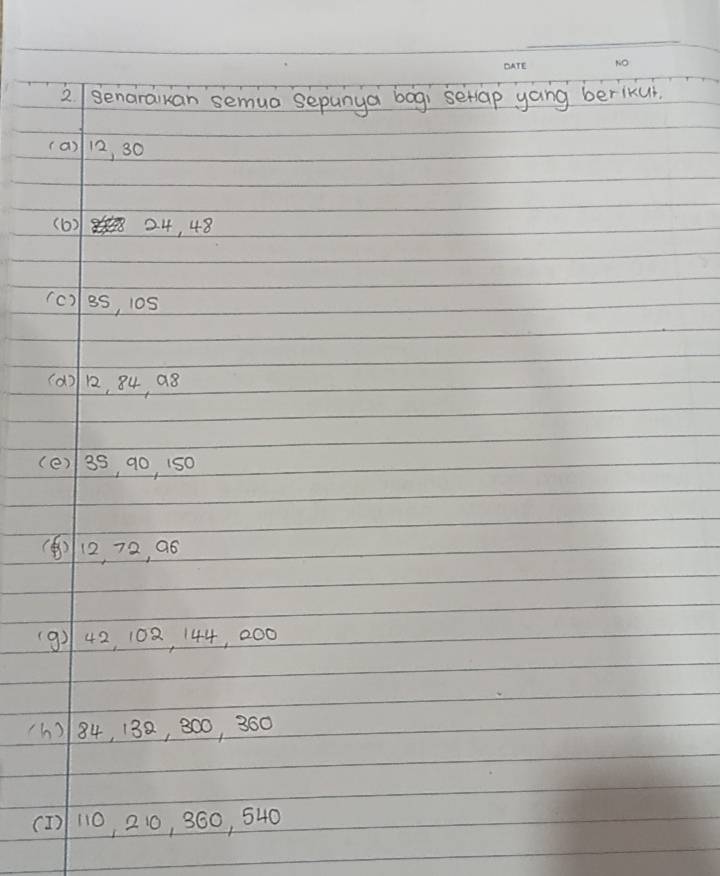 DATE NO
2. Senaraikan semua sepunya bagi setiap yang berikut.
(a) 12, 30
(b) 24, 48
(c) 35, 105
(d) 12, 84, 98
(e) 35, 90, 150
(f) 12, 72, 96
(g) 42, 102, 144, 200
(h) 84, 132, 300, 360
(I) 110, 210, 360, 540